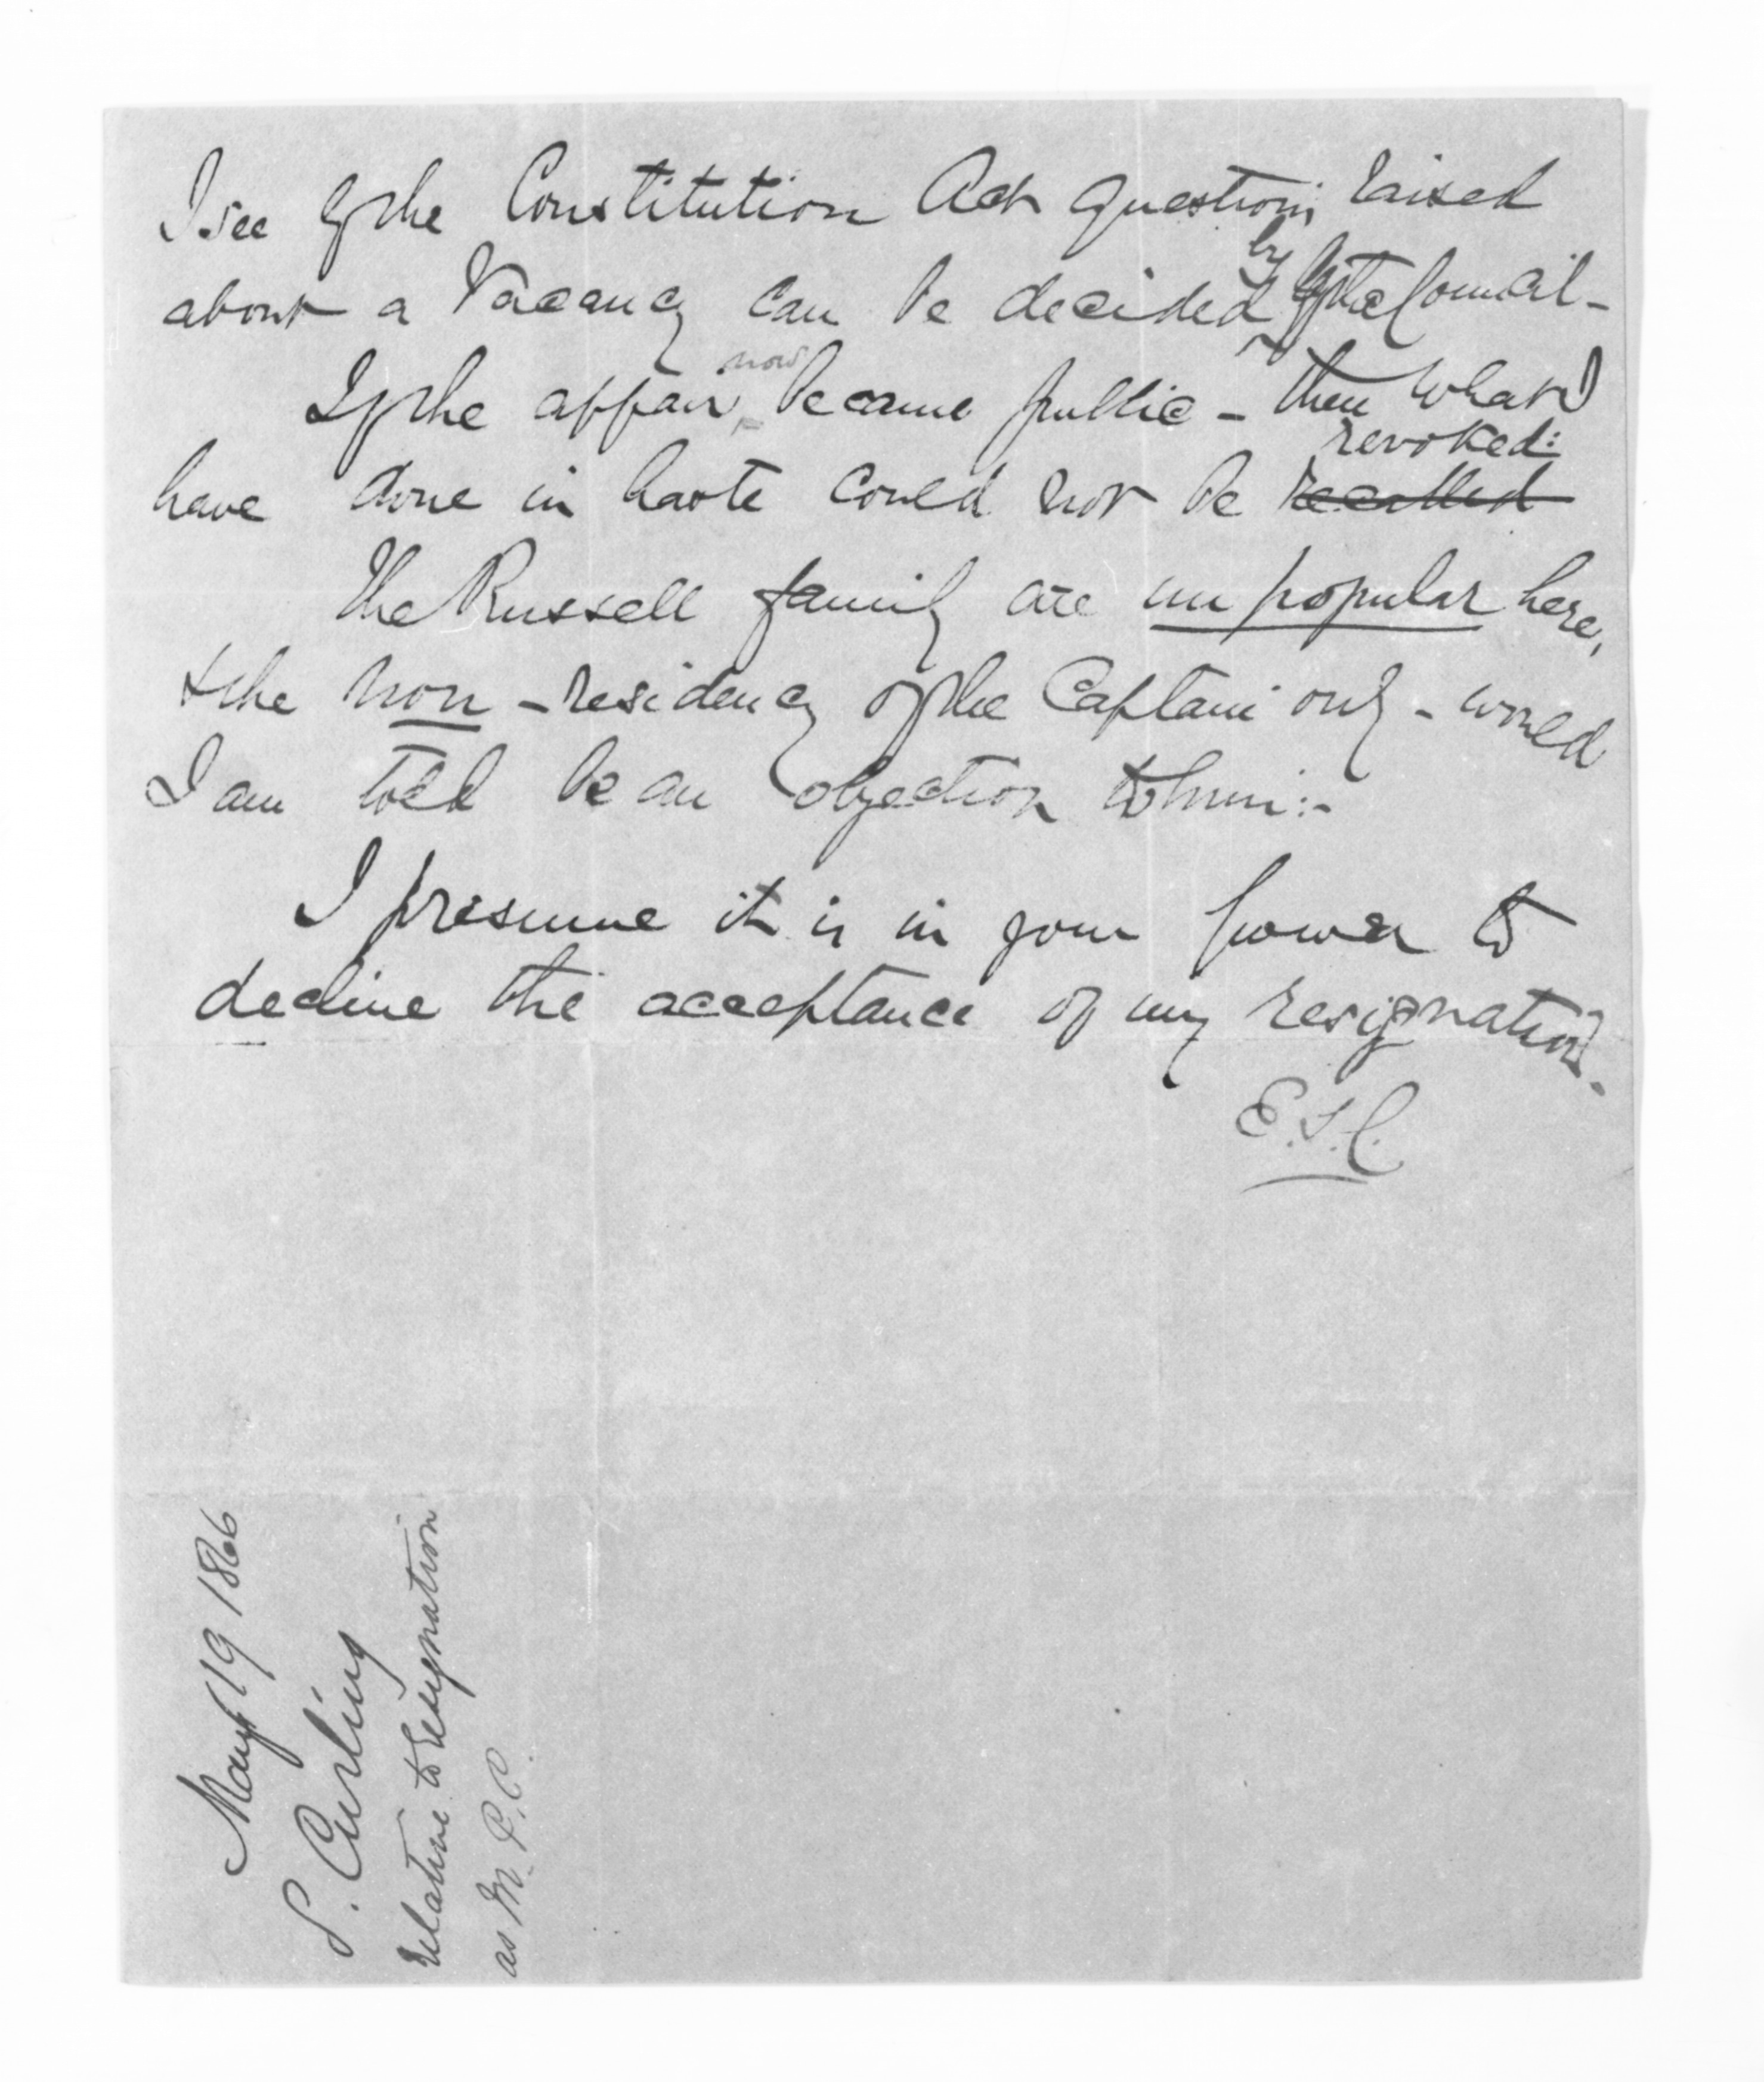 I see by the Constitution Act questions raised
about a Vacancy can be decided by the Council -
If the affair now became public - then what I
have done in haste could not be recalled revoked:
The Russell family are unpopular here,
& the non-residency of the Captain only - would
I am told be an objection to him:-
I presume it is in your power to
decline the acceptance of my resignation.
E.S.C.
May 19 1866
S. Curling
relative to resignation
as M.P.C.